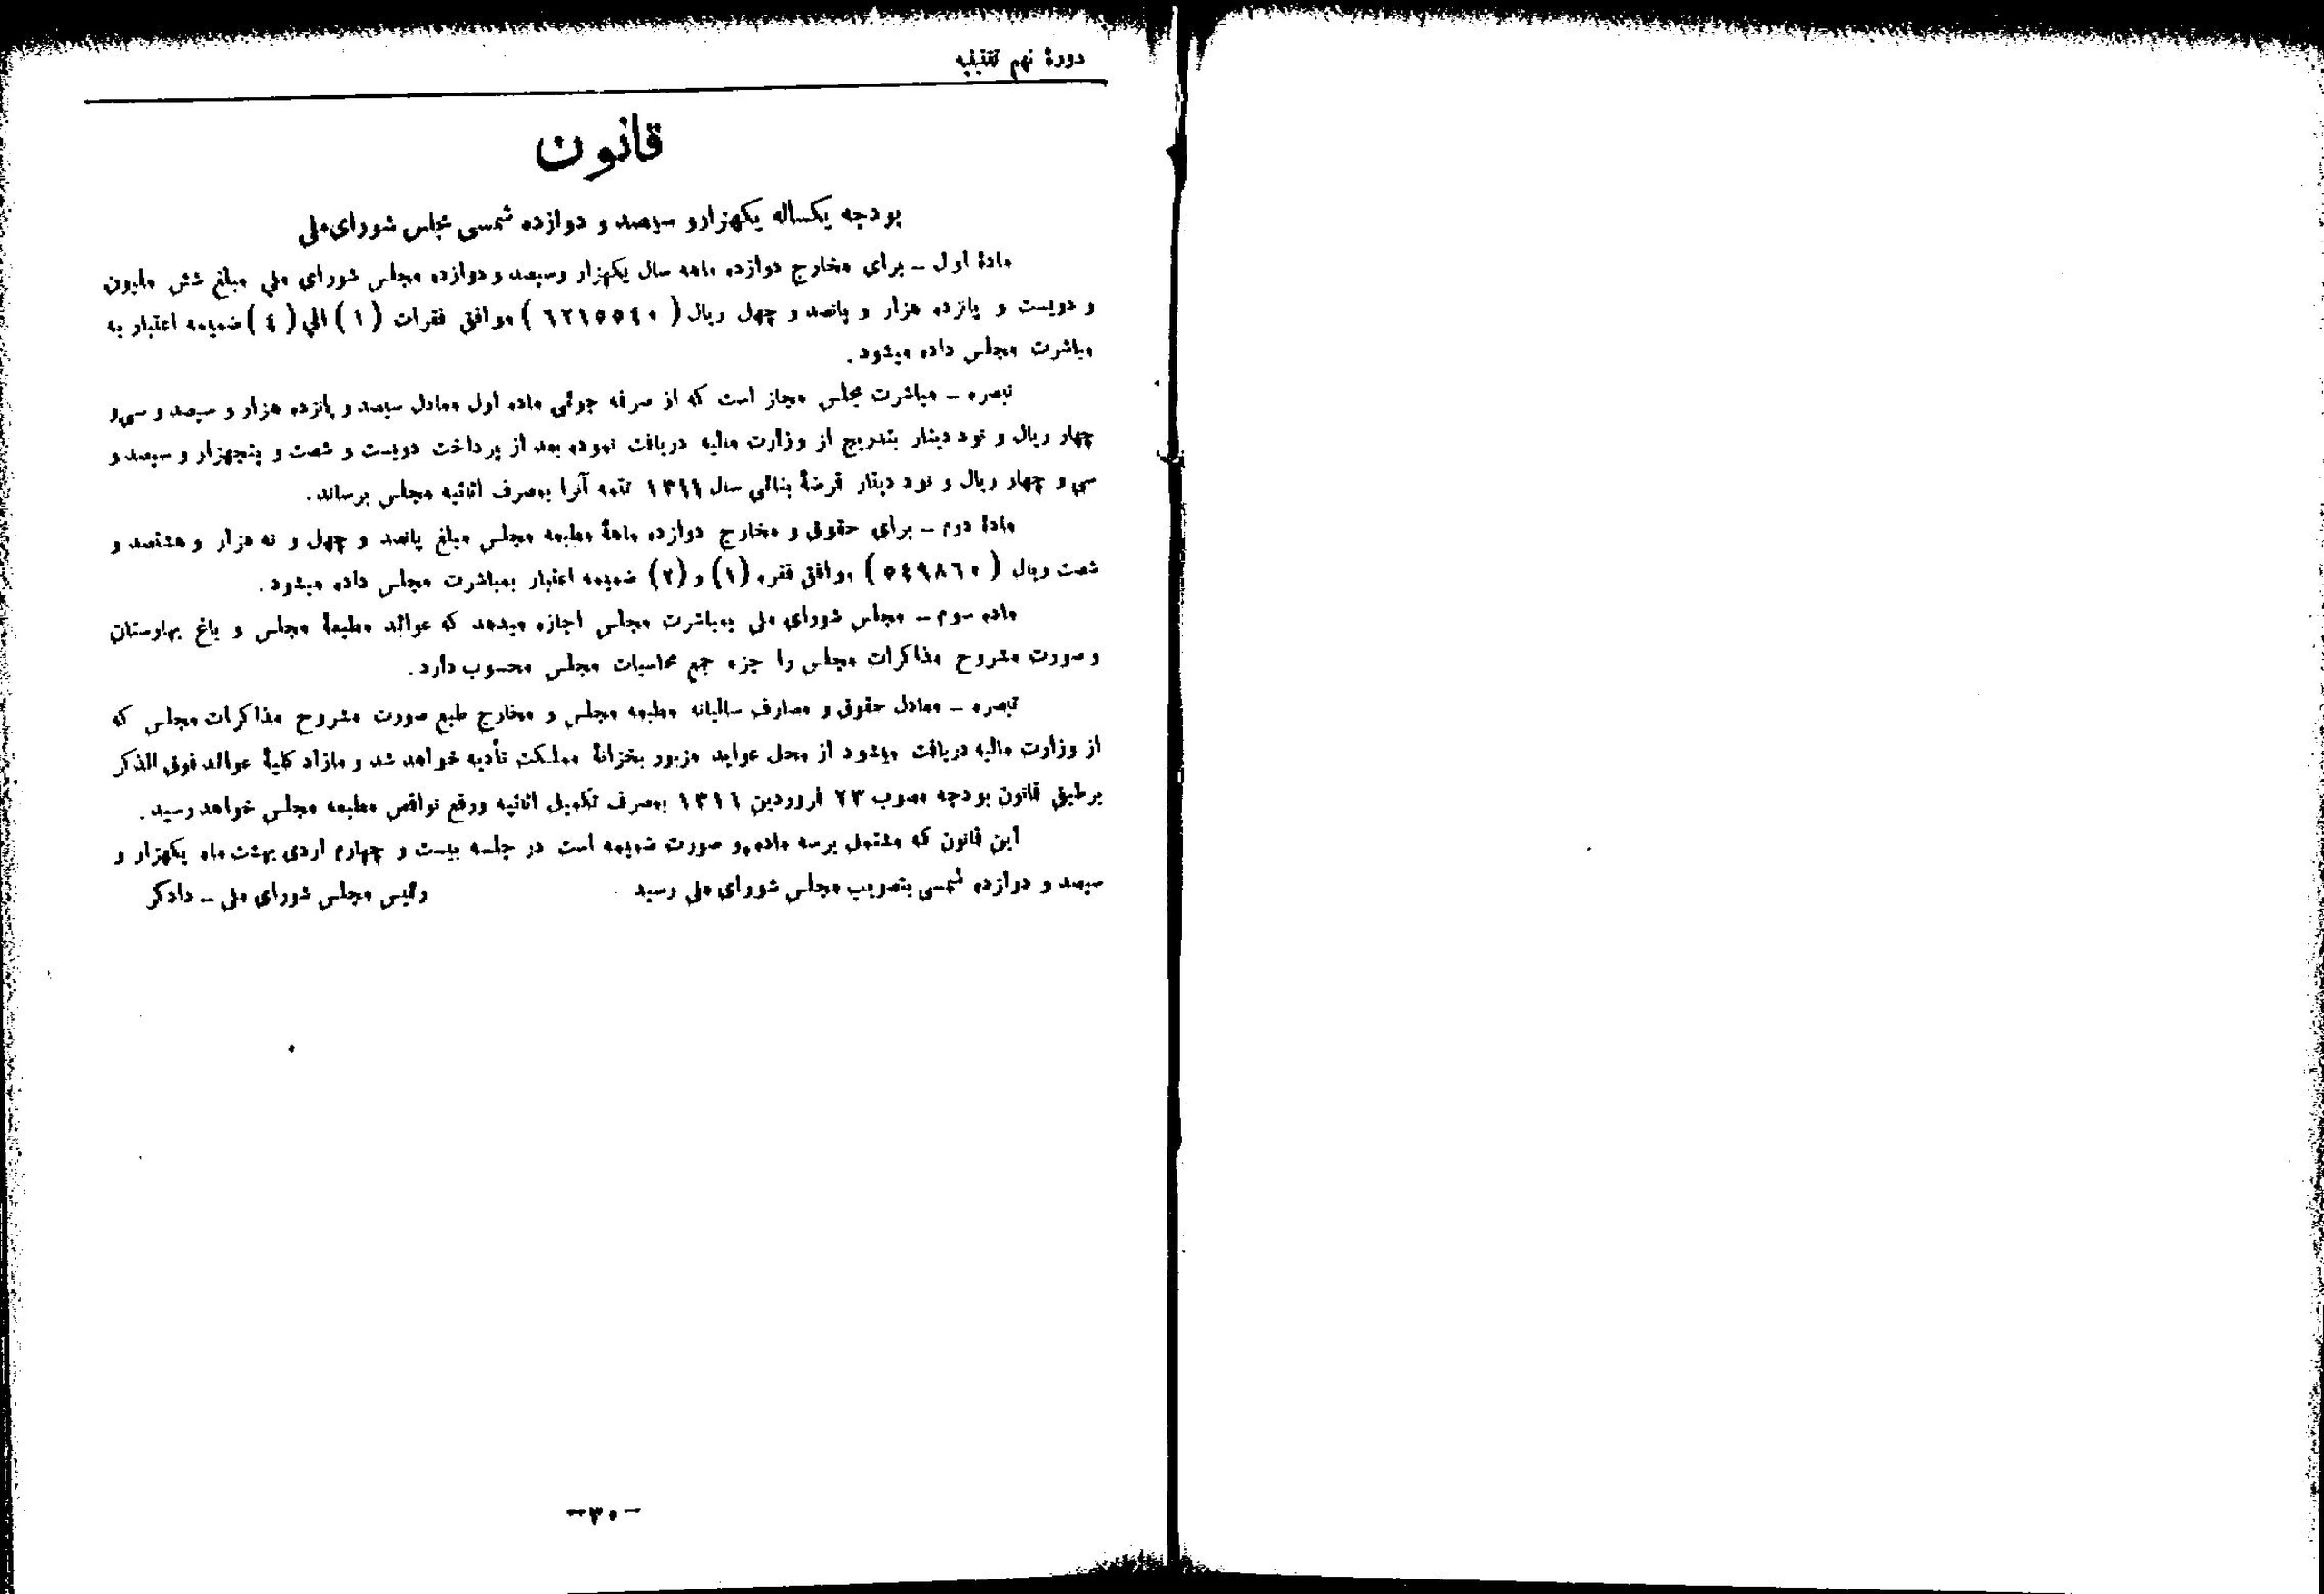 دورهٔ نهم تقنینیه
قانون
بودجه یکساله یکهزارو سیصد و دوازده شمسی مجلس شورای ملی
مادهٔ اول ـ برای مخارج دوازده ماهه سال یکهزار وسیصد و دوازده مجلس شورای ملي مبلغ شش ملیون
و دویست و پانزده هزار و پانصد و چهل ریال ( ٦٢١٥٥٤٠ ) موافق فقرات ( ١ ) الي ( ٤ ) ضمیمه اعتبار به
مباشرت مجلس داده میشود .
تبصره ـ مباشرت مجلس مجاز است که از صرفه جوئی ماده اول معادل سیصد و پانزده هزار و سیصد و سی و
چهار ریال و نود دینار بتدریج از وزارت مالیه دریافت نموده بعد از پرداخت دویست و شصت و پنجهزار و سیصد و
سی و چهار ریال و نود دینار قرضهٔ بنائی سال ١٣١١ تتمه آنرا بمصرف اثاثیه مجلس برساند .
مادهٔ دوم ـ برای حقوق و مخارج دوازده ماههٔ مطبعه مجلس مبلغ پانصد و چهل و نه هزار و هشتصد و
شصت ریال ( ٥٤٩٨٦٠ ) موافق فقره (١) و (٢) ضمیمه اعتبار بمباشرت مجلس داده میشود .
ماده سوم ـ مجلس شورای ملی بمباشرت مجلس اجازه میدهد که عوائد مطبعهٔ مجلس و باغ بهارستان
و صورت مشروح مذاکرات مجلس را جزء جمع محاسبات مجلس محسوب دارد .
تبصره ـ معادل حقوق و مصارف سالیانه مطبعه مجلس و مخارج طبع صورت مشروح مذاکرات مجلس که
از وزارت مالیه دریافت میشود از محل عواید مزبور بخزانهٔ مملکت تأدیه خواهد شد و مازاد کلیهٔ عوائد فوق الذکر
برطبق قانون بودجه مصوب ٢٣ فروردین ١٣١١ بمصرف تکمیل اثاثیه ورفع نواقص مطبعه مجلس خواهد رسید .
این قانون که مشتمل برسه ماده و صورت ضمیمه است در جلسه بیست و چهارم اردی بهشت ماه یکهزار و
سیصد و دوازده شمسی بتصویب مجلس شورای ملی رسید رئیس مجلس شورای ملی ـ دادگر
-٣٠-